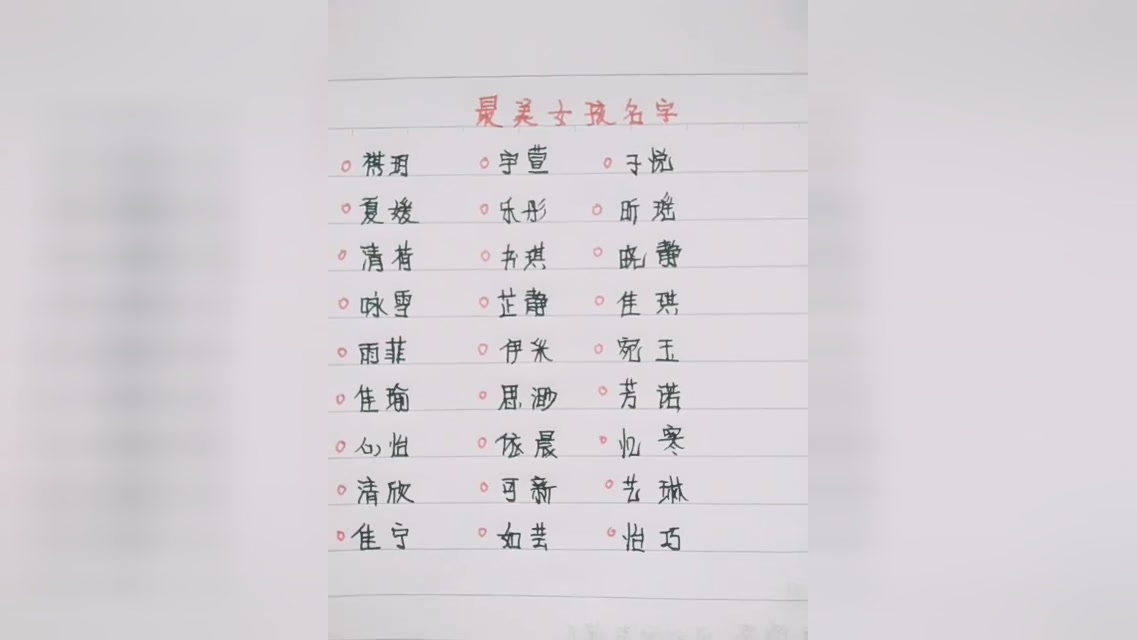 最美女孩名字
祺玥 宇萱 子悦
夏媛 乐彤 昕瑶
清荷 书琪 晓静
咏雪 芷静 佳琪
雨菲 伊米 宛玉
佳瑜 思渺 芳诺
心怡 依晨 忆寒
清欣 可新 艺琳
佳宁 如芸 怡巧